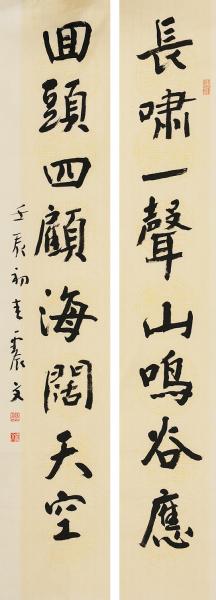 長嘯一聲山鳴谷應
回頭四顧海闊天空
壬辰初春震文